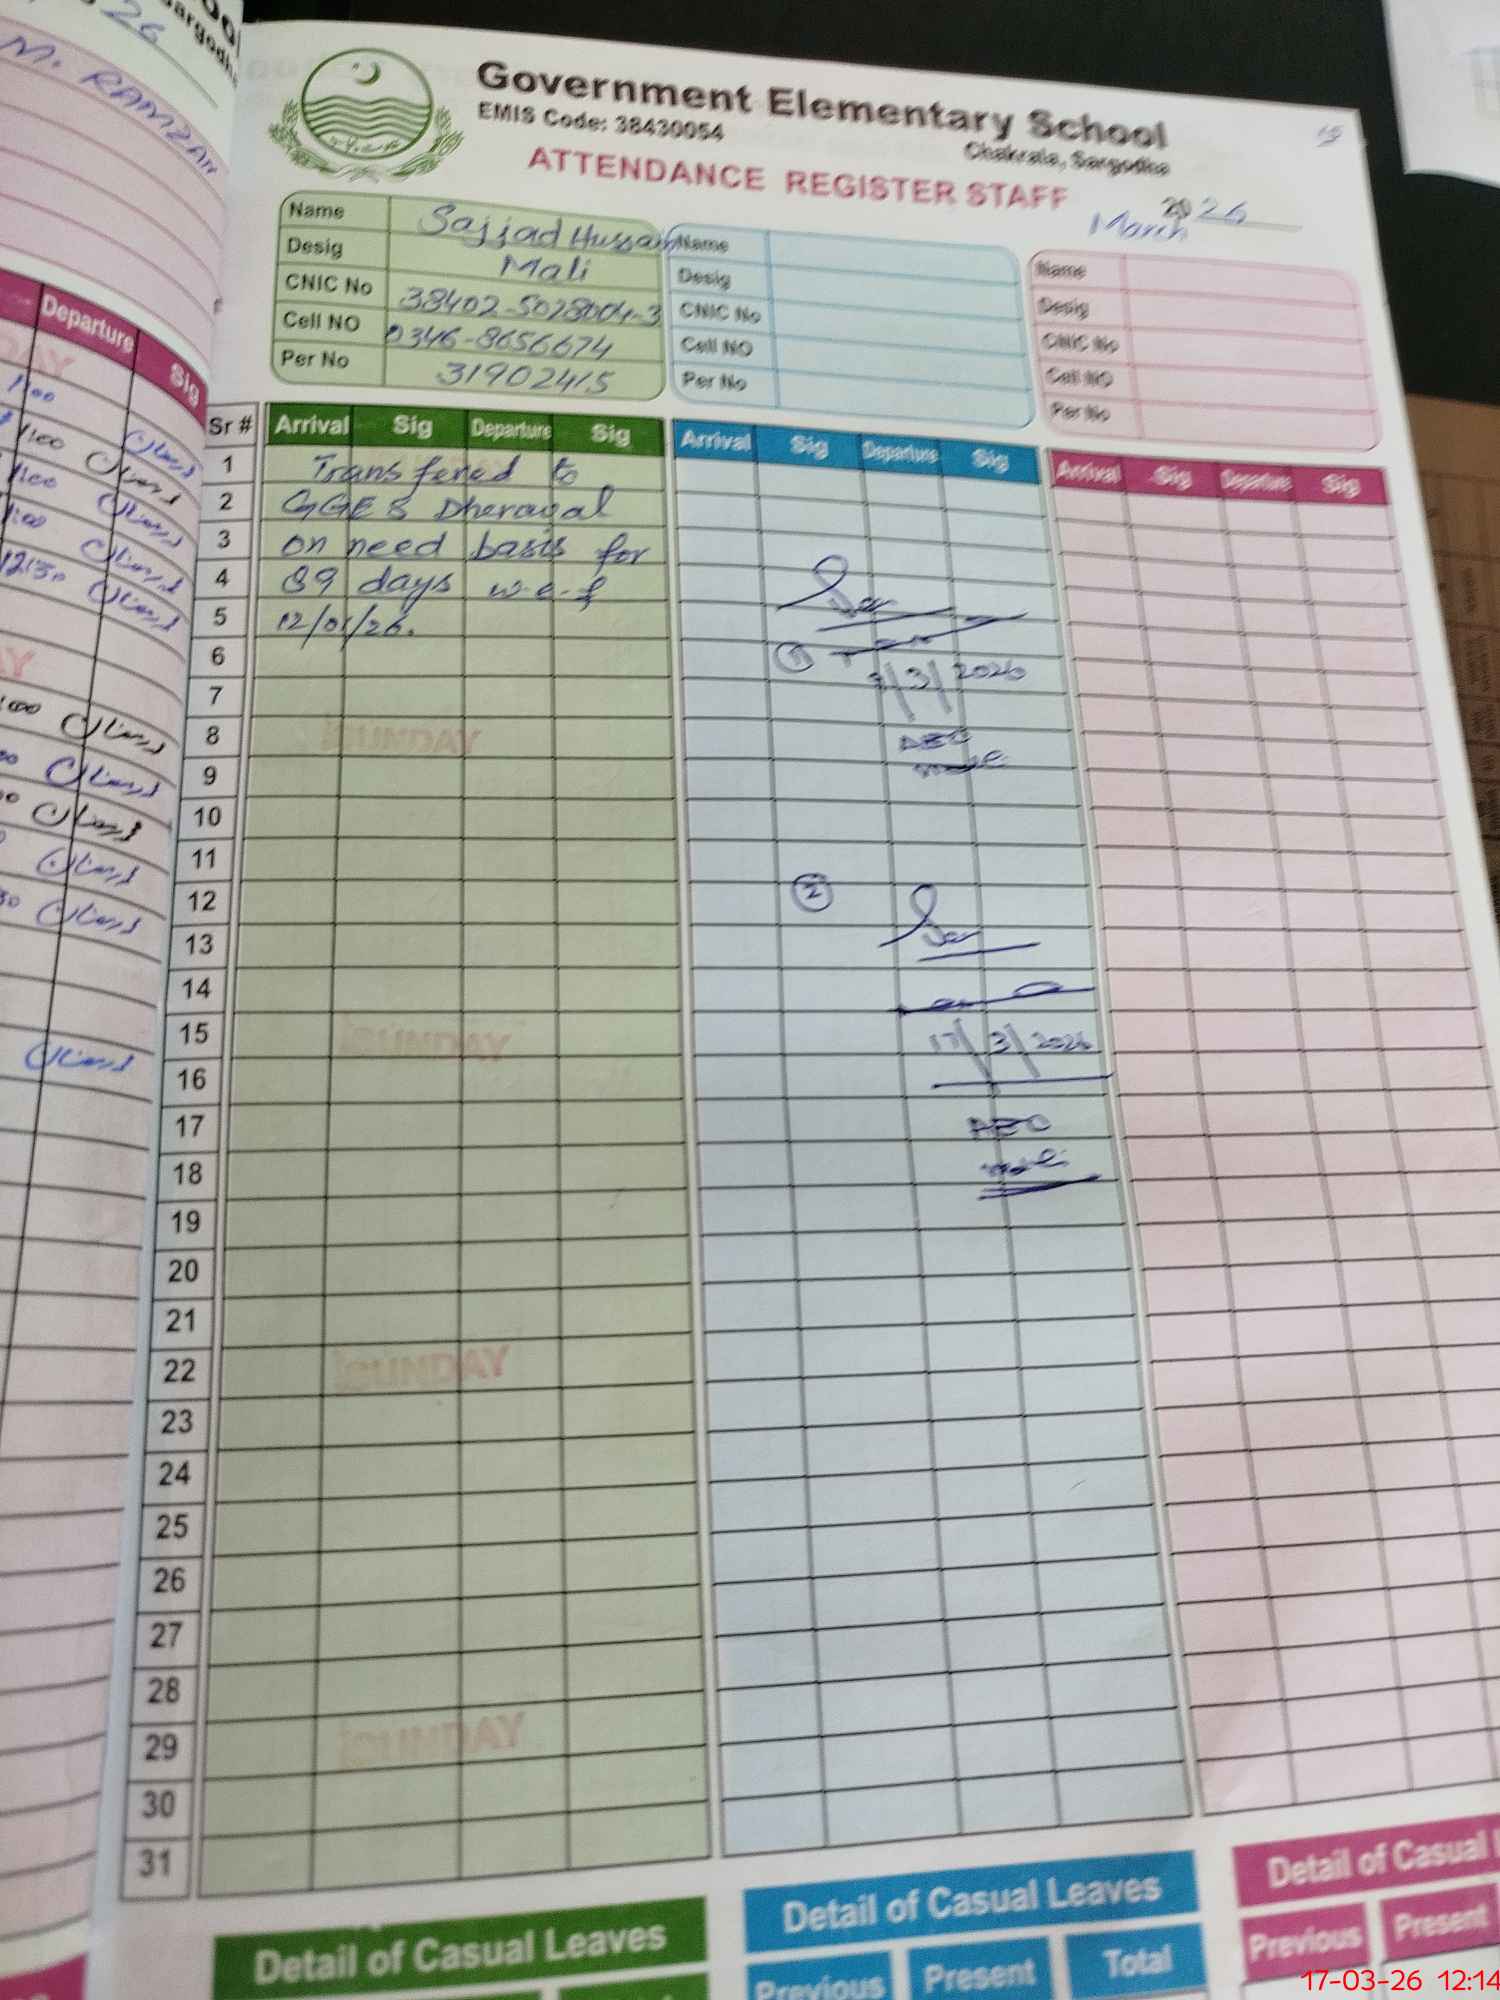 M. RAMZAN
Departure
Sig
Government Elementary School
EMIS Code: 38430054
Chakrala, Sargodha
ATTENDANCE REGISTER STAFF
2026
March
Name Sajjad Hussain
Desig Mali
CNIC No 38402-5028004-3
Cell NO 0346-8656674
Per No 31902415
Name
Desig
CNIC No
Cell NO
Per No
Name
Desig
CNIC No
Cell NO
Per No
Sr # Arrival Sig Departure Sig Arrival Sig Departure Sig Arrival Sig Departure Sig
1 Transfered to
2 GGES Dherowal
3 on need basis for
4 89 days w.e.f
5 12/01/26.
6 1
7 9/3/2026
8 SUNDAY AEO
9 male
10
11
12 2
13
14
15 SUNDAY 17/3/2026
16
17 AEO
18 male
19
20
21
22 SUNDAY
23
24
25
26
27
28
29 SUNDAY
30
31
Detail of Casual Leaves
Detail of Casual Leaves
Previous Present Total
Detail of Casual
Previous Present
17-03-26 12:14